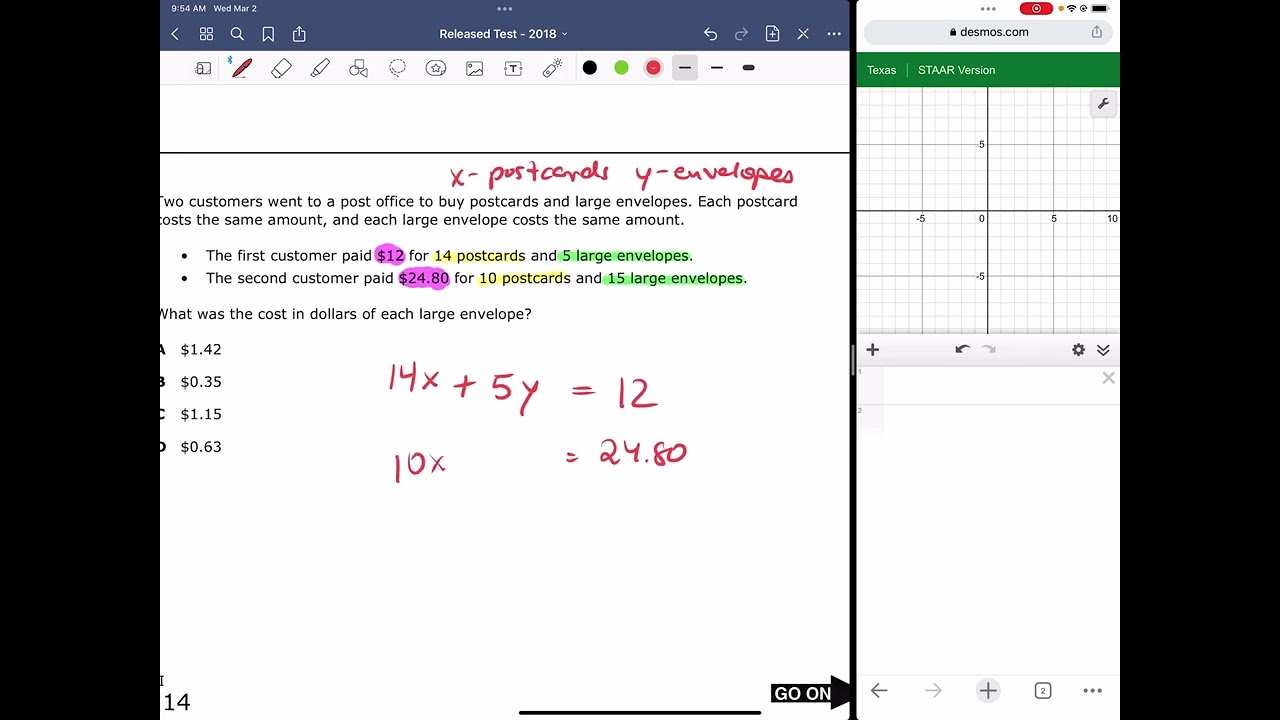 9:54 AM Wed Mar 2
Released Test - 2018
desmos.com
Texas STAAR Version
x- postcards y-envelopes
Two customers went to a post office to buy postcards and large envelopes. Each postcard
costs the same amount, and each large envelope costs the same amount.
• The first customer paid $12 for 14 postcards and 5 large envelopes.
• The second customer paid $24.80 for 10 postcards and 15 large envelopes.
What was the cost in dollars of each large envelope?
A $1.42
B $0.35
C $1.15
D $0.63
14x + 5y = 12
10x = 24.80
14
GO ON
5
-5 0 5 10
-5
1
2
2